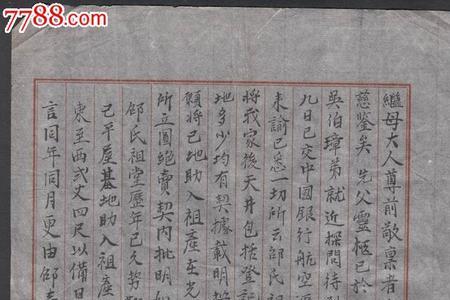 7788.com
繼母大人尊前敬稟者
慈鑒矣先父靈柩已於
吳伯璋弟就近探問待到
九日已交中國銀行航空
來諭已悉一切所云邵氏祖
將我家後天井包括登記
地多少均有契據載明
願將己地助入祖產在光
所立圓絕賣契內批明如
邵氏祖堂歷年已久勢
己平屋基地助入祖產
東至西弍丈四尺以備日
言同年同月更由邵